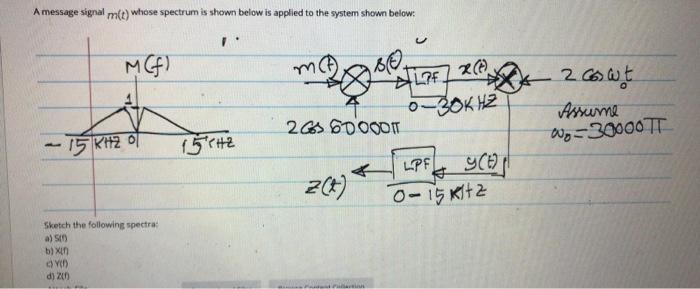 A message signal m(t) whose spectrum is shown below is applied to the system shown below:
M(f)
1
-15 KHZ 0 15 KHZ
m(t) s(t) LPF x(t) 2 cos ω₀t
0-30KHZ
2 cos 60000π
Assume
ω₀=30000π
Z(t) LPF y(t)
0-15 KHZ
Sketch the following spectra:
a) S(f)
b) X(f)
c) Y(f)
d) Z(f)